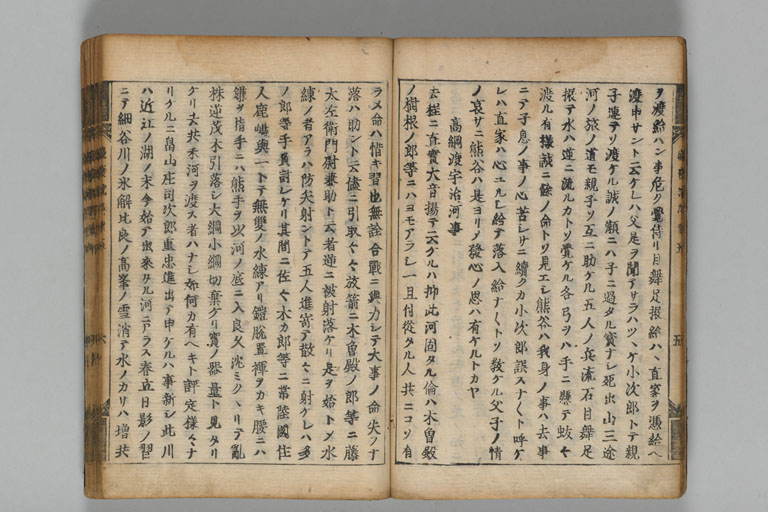 ヲ渡給ハン事危ク覺侍リ目舞足振給ハヽ直家ヲ憑給ヘ
渡申サント云ケレハ父是ヲ聞アサラハツヽケ小次郎トテ親
子連テソ渡ケル誠ノ瀬ニハ子ニ過タル寳ナシ死出山三途
河ノ旅ノ道モ親子ソ互ニ助ケル五人ノ兵流石目舞足
振テ水ハ速ニ流ルカトソ覺ケル各弓ヲハ手ニ懸テ
渡ル有様誠ニ餘ノ命トソ見エシ熊谷ハ我身ノ事ハ去事
ニテ子息ノ事ノ心苦シサニ續クカ小次郎誤スナトソ呼ケ
レハ直家ハ心エルレ給ナ落入給ナトソ敎ケル父子ノ情
ノ哀サニ熊谷ハ是ヨリノ發心ノ思ハ有ケルトカヤ
高綱渡宇治河事
去程ニ直實大音揚テ云ケルハ抑此河固タル倫ハ木曽殿
ノ樹根ノ郎等ニハヨモアラシ一旦付從タル人共ニコソ有
ラメ命ハ惜キ習也無詮合戰ニ與力シテ大事ノ命失フナ
落ハ助ント云儘ニ引取々々放箭ニ木曽殿ノ郎等ニ藤
太左衛門尉兼助ト云者逆ニ被射落ケリ是ヲ始トメ水
練ノ者アラハ防矢射ントテ五人進寄テ散々ニ射ケレハ多
ノ郎等手負討レケリ其間ニ佐々木カ郎等ニ常陸國住
人鹿嶋與一トテ無雙ノ水練アリ鎧脱置褌ヲカキ腰ニハ
鎌ヲ指手ニハ熊手ヲ以河ノ底ニ入良久沈ミクヽリテ亂
株逆茂木引落シ大綱小綱切棄ケリ實ノ器量ト見タリ
ケリ去共未河ヲ渡ス者ハナシ如何カ有ヘキト評定様々ナ
リケルニ畠山庄司次郎重忠進出テ申ケルハ事新シ此川
ハ近江ノ湖ノ末今始テ出來タル河ニアラス春立日影ノ習
ニテ細谷川ノ氷解比良ノ高峯ノ雪消テ水ノカサハ増共